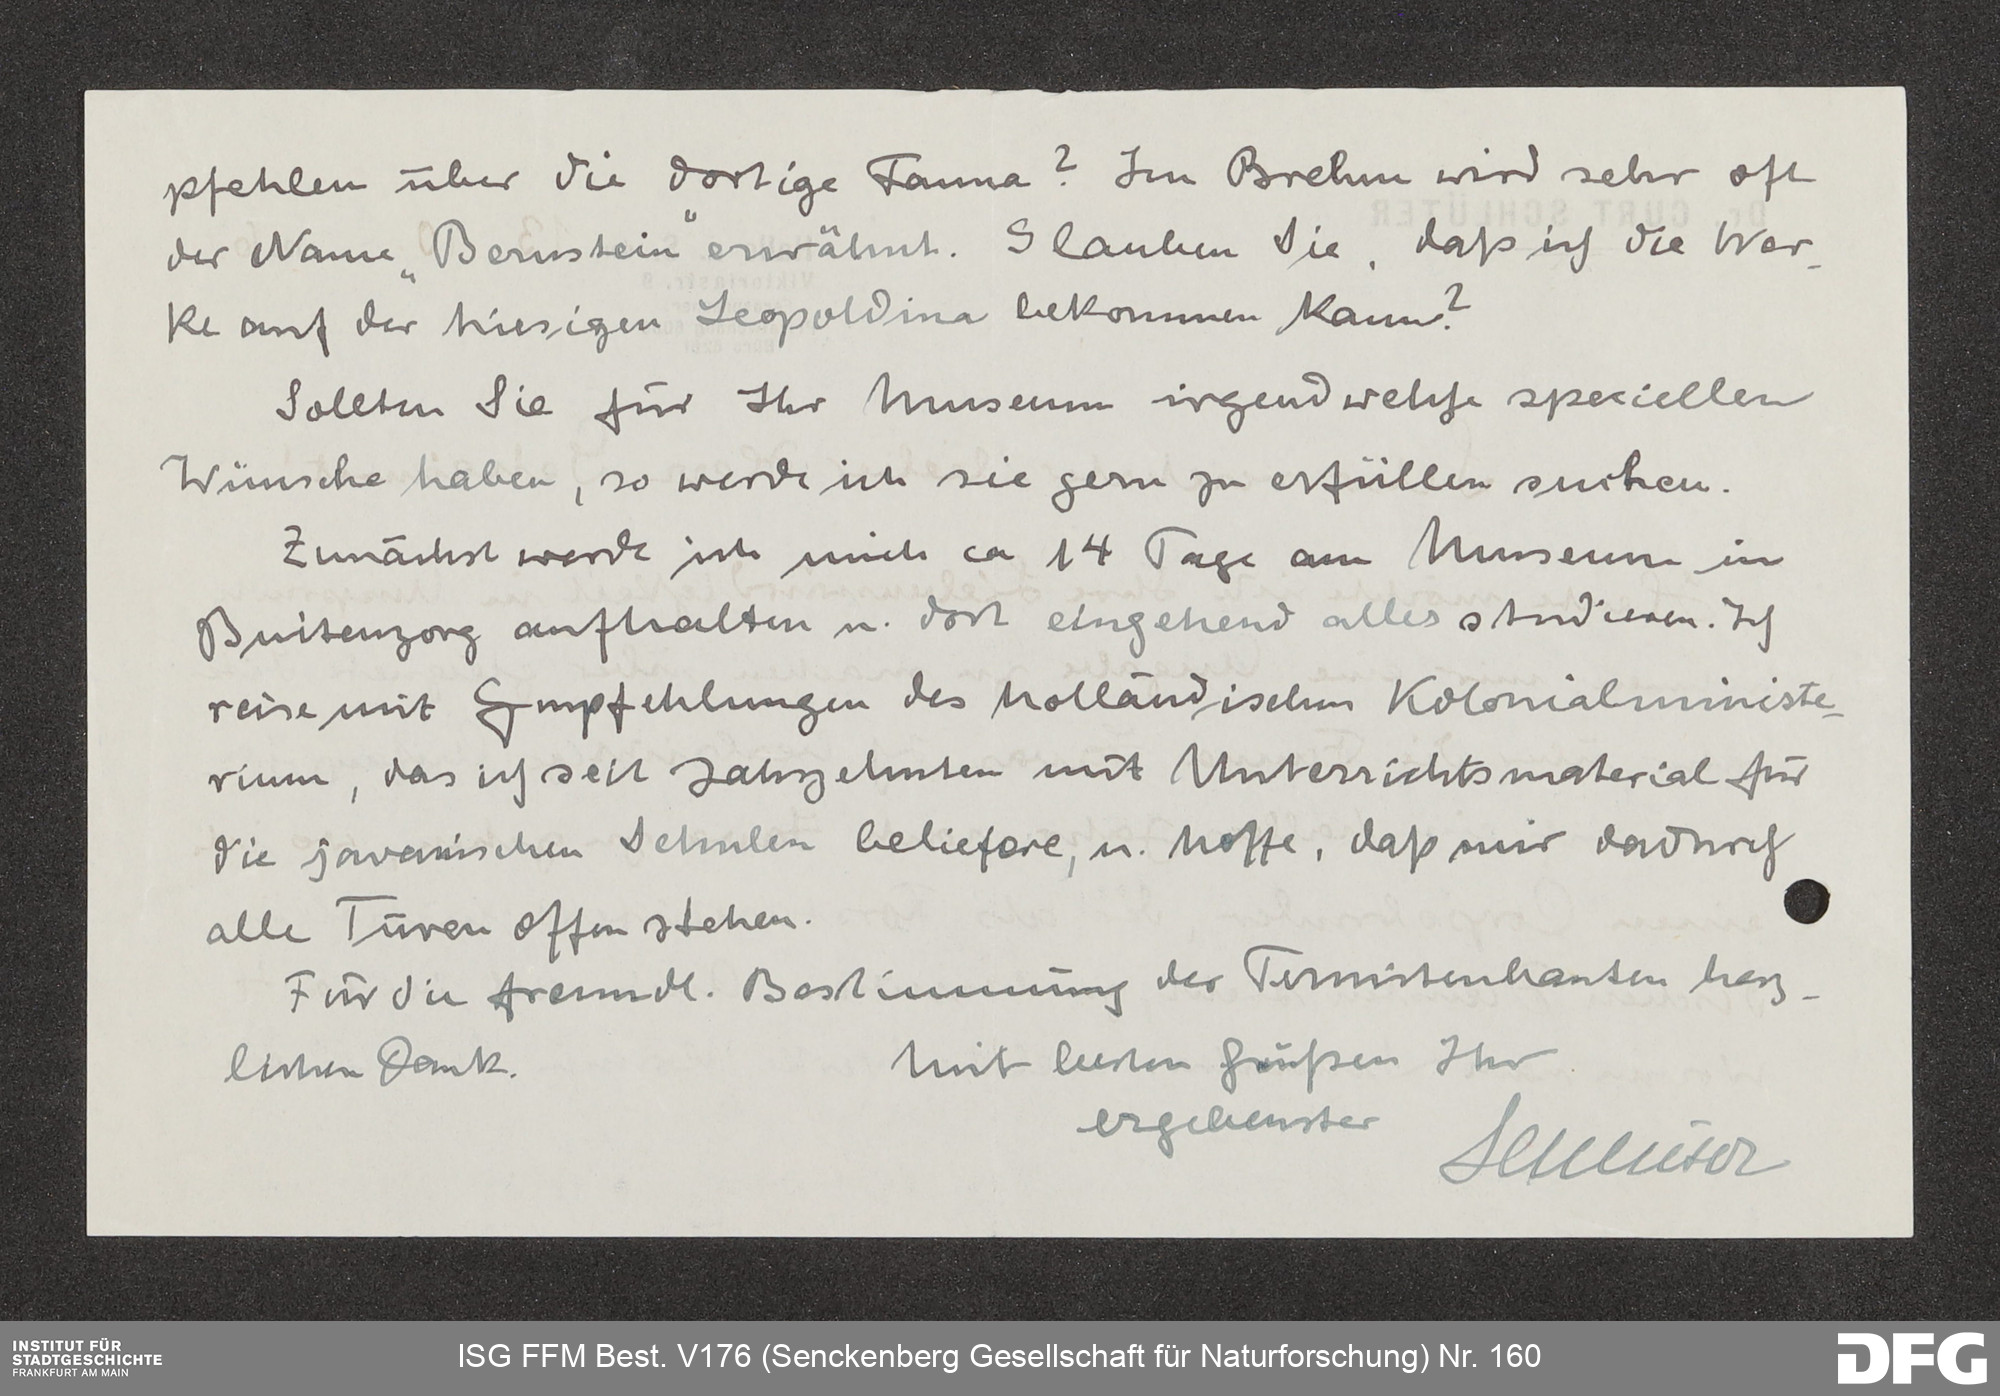 pfehlen über die dortige Fauna? Im Brehm wird sehr oft
der Name „Bernstein" erwähnt. Glauben Sie, daß ich die Wer-
ke auf der hiesigen Leopoldina bekommen kann?
Sollten Sie für Ihr Museum irgendwelche speciellen
Wünsche haben, so werde ich sie gern zu erfüllen suchen.
Zunächst werde ich mich ca 14 Tage am Museum in
Buitenzorg aufhalten u. dort eingehend alles studieren. Ich
reise mit Empfehlungen des holländischen Kolonialministe-
rium, das ich seit Jahrzehnten mit Unterrichtsmaterial für
die javanischen Schulen beliefere, u. hoffe, daß mir dadurch
alle Türen offen stehen.
Für die freundl. Bestimmung der Termitenbauten herz-
lichen Dank.
Mit besten Grüßen Ihr
ergebenster
Schlüter
Dr. CURT SCHLÜTER
Viktoriastr. 9
INSTITUT FÜR
STADTGESCHICHTE
FRANKFURT AM MAIN
ISG FFM Best. V176 (Senckenberg Gesellschaft für Naturforschung) Nr. 160
DFG